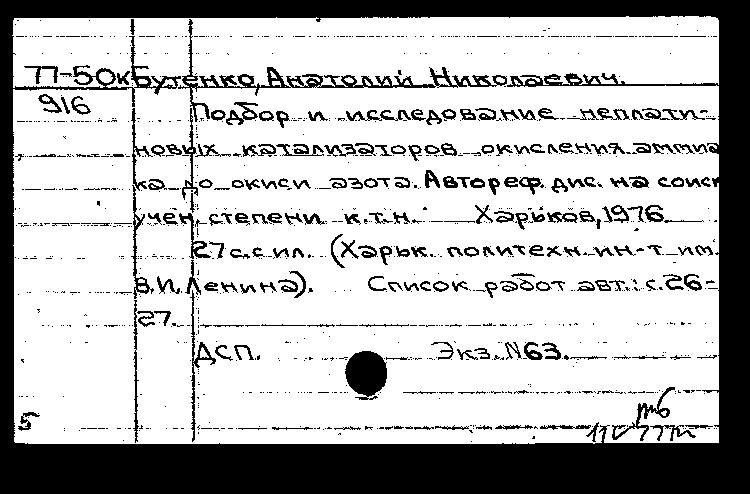 77-50к Бутенко, Анатолий Николаевич.
916
Подбор и исследование неплати-
новых катализаторов окисления аммиа
ка до окиси азота. Автореф. дис. на соиск
учен. степени к.т.н. Харьков, 1976.
27 с. с ил. (Харьк. политехн. ин-т им.
В.И. Ленина). Список работ авт.: с. 26-
27.
ДСП. Экз. N63.
5